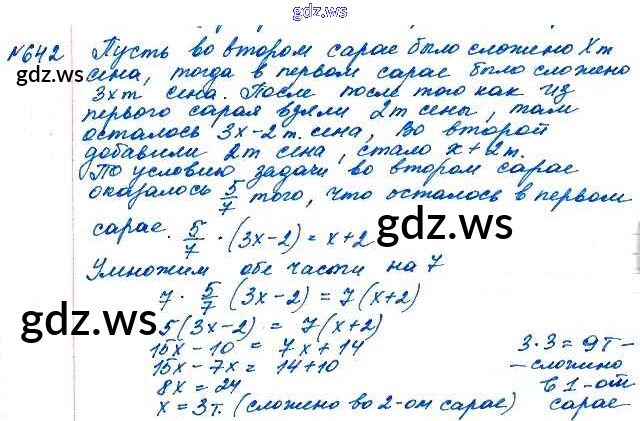 gdz.ws
№642 Пусть во втором сарае было сложено Xт
сена, тогда в первом сарае было сложено
3xт сена. После после того как из
первого сарая взяли 2т сены, там
осталось 3x-2т. сена, во второй
добавили 2т сена, стало x+2т.
По условию задачи во втором сарае
оказалось 5/7 того, что осталось в первом
сарае. 5/7 · (3x-2) = x+2
Умножим обе части на 7
7 · 5/7 (3x-2) = 7(x+2)
5(3x-2) = 7(x+2)
15x - 10 = 7x+14
15x - 7x = 14+10
8x = 24
x = 3т. (сложено во 2-ом сарае)
3·3 = 9т -
- сложено
в 1-от
сарае
gdz.ws
gdz.ws
gdz.ws
gdz.ws